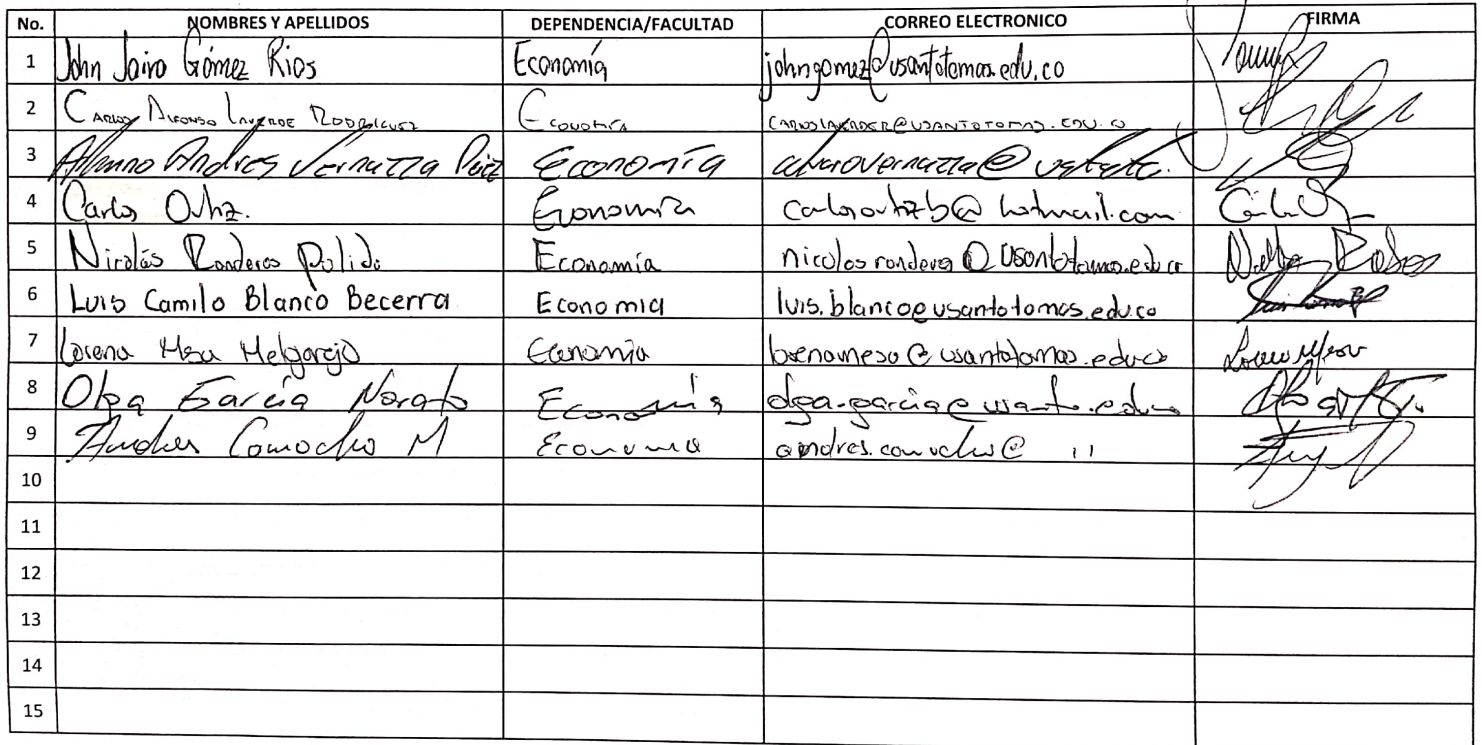 No. NOMBRES Y APELLIDOS DEPENDENCIA/FACULTAD CORREO ELECTRONICO FIRMA
1 John Jairo Gómez Rios Economía johngomez@usantotomas.edu.co
2 CARLOS ALFONSO LAVERDE RODRIGUEZ ECONOMÍA CARLOSLAVERDER@USANTOTOMAS.EDU.CO
3 Alvaro Andres Vernazza Páez Economía alvarovernazza@
4 Carlos Ortiz. Economía carlosortizb@hotmail.com
5 Nicolás Ronderos Pulido Economía nicolasronderos@usantotomas.edu.co
6 Luis Camilo Blanco Becerra Economia luis.blanco@usantotomas.edu.co
7 Lorena Mesa Melgarejo Economía lorenamesa@usantotomas.edu.co
8 Olga García Norato Economía olga.garcia@usanto.edu.co
9 Andres Camacho M Economia andres.camacho@ ıı
10
11
12
13
14
15